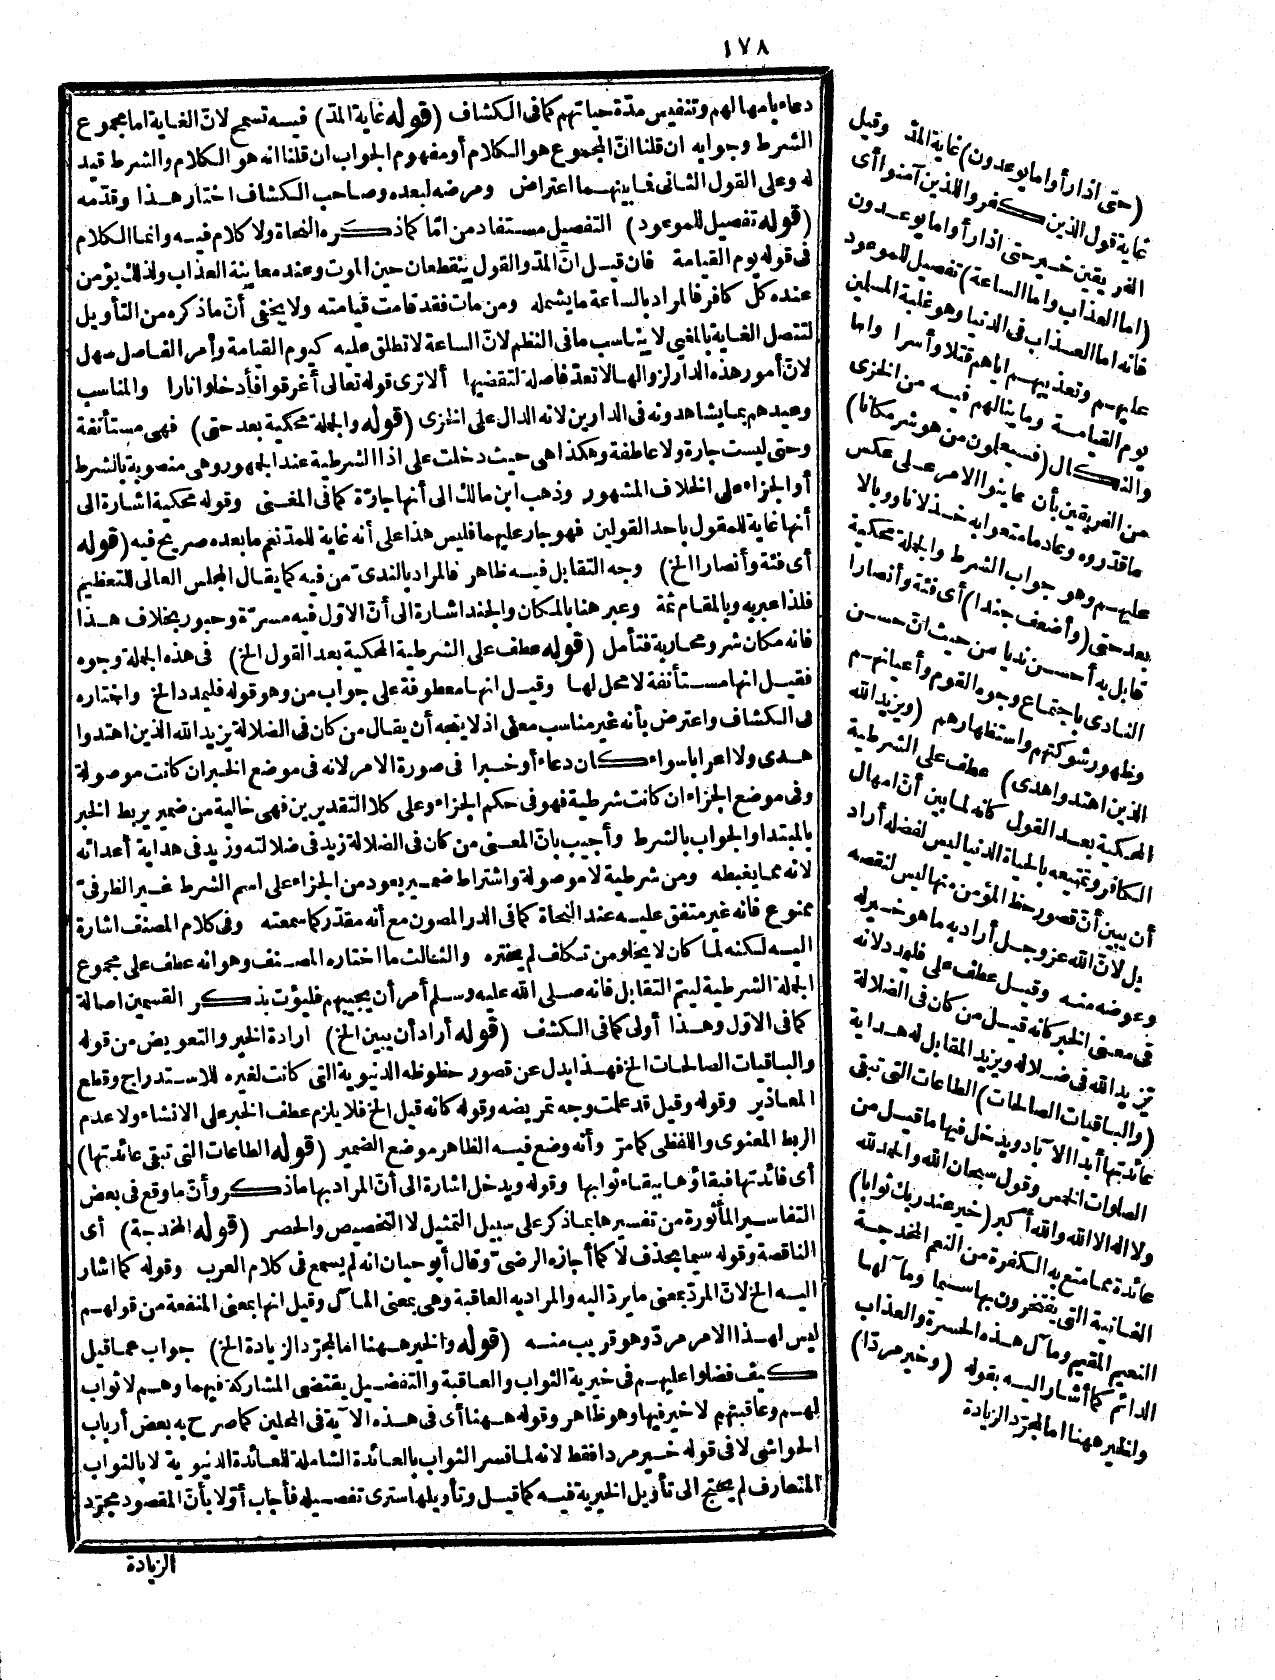 ١٧٨
دعاء بامهالهم وتنفيس مدّة حياتهم كما فى الكشاف (قوله غاية المدّ) فيه تسمح لانّ الغاية اما مجموع
الشرط وجوابه ان قلنا انّ المجموع هو الكلام أو مفهوم الجواب ان قلنا انه هو الكلام والشرط قيد
له وعلى القول الثانى فما بينهما اعتراض ومرضه لبعده وصاحب الكشاف اختار هذا وقدّمه
(قوله تفصيل للموعود) التفصيل مستفاد من امّا كما ذكره النحاة ولا كلام فيه وانما الكلام
فى قوله يوم القيامة فان قيل انّ المدّ والقول ينقطعان حين الموت وعند معاينة العذاب ولذلك يؤمن
عنده كلّ كافر فالمراد بالساعة ما يشمله ومن مات فقد قامت قيامته ولا يخفى أنّ ما ذكره من التأويل
لتتصل الغاية بالمغيى لا يناسب ما فى النظم لانّ الساعة لا تطلق عليه كيوم القيامة وأمر الفاصل سهل
لانّ أمور هذه الدار لزوالها لا تعدّ فاصلة لتقضيها ألا ترى قوله تعالى أغرقوا فأدخلوا نارا والمناسب
وعيدهم بما يشاهدونه فى الدارين لانه الدال على الخزى (قوله والجملة محكية بعد حتى) فهى مستأنفة
وحتى ليست جارة ولا عاطفة وهكذا هى حيث دخلت على اذا الشرطية عند الجمهور وهى منصوبة بالشرط
أو الجزاء على الخلاف المشهور وذهب ابن مالك الى أنها جارّة كما فى المغنى وقوله محكية اشارة الى
أنها غاية للمقول باحد القولين فهو جار عليهما فليس هذا على أنه غاية للمدّ نعم ما بعده صريح فيه (قوله
أى فئة وأنصارا الخ) وجه التقابل فيه ظاهر فالمراد بالندىّ من فيه كما يقال المجلس العالى للتعظيم
فلذا عبر به وبالمقام ثمة وعبر هنا بالمكان والجند اشارة الى أنّ الاوّل فيه مسرّة وحبور بخلاف هذا
فانه مكان شر ومحاربة فتأمل (قوله عطف على الشرطية المحكية بعد القول الخ) فى هذه الجملة وجوه
فقيل انها مستأنفة لا محل لها وقيل انها معطوفة على جواب من وهو قوله فليمدد الخ واختاره
فى الكشاف واعترض بأنه غير مناسب معنى اذ لا يتجه أن يقال من كان فى الضلالة يزيد الله الذين اهتدوا
هدى ولا اعرابا سواء كان دعاء أو خبرا فى صورة الامر لانه فى موضع الخبر ان كانت موصولة
وفى موضع الجزاء ان كانت شرطية فهو فى حكم الجزاء وعلى كلا التقديرين فهى خالية من ضمير يربط الخبر
بالمبتدا والجواب بالشرط وأجيب بانّ المعنى من كان فى الضلالة زيد فى ضلالته وزيد فى هداية أعدائه
لانه مما يغيظه ومن شرطية لا موصولة واشتراط ضمير يعود من الجزاء على اسم الشرط غير الظرفىّ
ممنوع فانه غير متفق عليه عند النحاة كما فى الدر المصون مع أنه مقدّر كما سمعته وفى كلام المصنف اشارة
اليه لكنه لما كان لا يخلو من تكلف لم يختره والثالث ما اختاره المصنف وهو انه عطف على مجموع
الجملة الشرطية ليتم التقابل فانه صلى الله عليه وسلم أمر أن يجيبهم فليؤت بذكر القسمين اصالة
كما فى الاوّل وهذا أولى كما فى الكشف (قوله أراد أن يبين الخ) ارادة الخير والتعويض من قوله
والباقيات الصالحات الخ فهذا بدل عن قصور حظوظه الدنيوية التى كانت لغيره للاستدراج وقطع
المعاذير وقوله وقيل قد علمت وجه تمريضه وقوله كانه قيل الخ فلا يلزم عطف الخبر على الانشاء ولا عدم
الربط المعنوى واللفظى كما مرّ وأنه وضع فيه الظاهر موضع الضمير (قوله الطاعات التى تبقى عائدتها)
أى فائدتها فبقاؤها ببقاء ثوابها وقوله ويدخل اشارة الى أنّ المراد بها ما ذكر وأنّ ما وقع فى بعض
التفاسير المأثورة من تفسيرها بما ذكر على سبيل التمثيل لا التخصيص والحصر (قوله المخدجة) أى
الناقصة وقوله سيما بحذف لا كما أجازه الرضىّ وقال أبو حيان انه لم يسمع فى كلام العرب وقوله كما اشار
اليه الخ لانّ المردّ بمعنى ما يردّ اليه والمراد به العاقبة وهى بمعنى المآل وقيل انها بمعنى المنفعة من قولهم
ليس لهذا الامر مردّ وهو قريب منه (قوله والخير ههنا اما لمجرّد الزيادة الخ) جواب عما قيل
كيف فضلوا عليهم فى خيرية الثواب والعاقبة والتفضيل يقتضى المشاركة فيهما وهم لا ثواب
لهم وعاقبتهم لا خير فيها وهو ظاهر وقوله ههنا أى فى هذه الآية فى المحلين كما صرح به بعض أرباب
الحواشى لا فى قوله خير مردا فقط لانه لما فسر الثواب بالعائدة الشاملة للعائدة الدنيوية لا بالثواب
المتعارف لم يحتج الى تأويل الخيرية فيه كما قيل وتأويلها سترى تفصيله فأجاب أوّلا بأنّ المقصود مجرّد
الزيادة
(حتى اذا رأوا ما يوعدون) غاية المدّ وقيل
غاية قول الذين كفروا للذين آمنوا أى
الفريقين خير حتى اذا رأوا ما يوعدون
(اما العذاب واما الساعة) تفصيل للموعود
فانه اما العذاب فى الدنيا وهو غلبة المسلمين
عليهم وتعذيبهم اياهم قتلا وأسرا واما
يوم القيامة وما ينالهم فيه من الخزى
والنكال (فسيعلمون من هو شر مكانا)
من الفريقين بأن عاينوا الامر على عكس
ما قدّروه وعاد ما متعوا به خذلانا ووبالا
عليهم وهو جواب الشرط والجملة محكية
بعد حتى (وأضعف جندا) أى فئة وأنصارا
قابل به أحسن نديا من حيث انّ حسن
النادى باجتماع وجوه القوم وأعيانهم
وظهور شوكتهم واستظهارهم (ويزيد الله
الذين اهتدوا هدى) عطف على الشرطية
المحكية بعد القول كانه لما بين أنّ امهال
الكافر وتمتيعه بالحياة الدنيا ليس لفضله أراد
أن يبين أنّ قصور حظ المؤمن منها ليس لنقصه
بل لانّ الله عز وجل أراد به ما هو خير له
وعوضه منه وقيل عطف على فليمدد لانه
فى معنى الخبر كانه قيل من كان فى الضلالة
يزيد الله فى ضلاله ويزيد المقابل له هداية
(والباقيات الصالحات) الطاعات التى تبقى
عائدتها أبد الآباد ويدخل فيها ما قيل من
الصلوات الخمس وقول سبحان الله والحمد لله
ولا اله الا الله والله أكبر (خير عند ربك ثوابا)
عائدة مما متع به الكفرة من النعم المخدجة
الفانية التى يفتخرون بها سيما ومآلها
النعيم المقيم ومآل هذه الحسرة والعذاب
الدائم كما أشار اليه بقوله (وخير مردّا)
والخير ههنا اما لمجرّد الزيادة